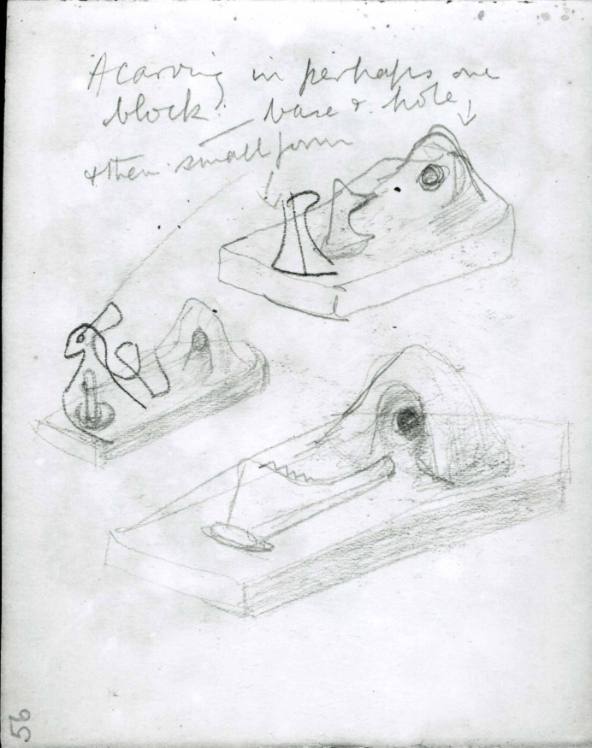 A carving in perhaps one
block. base & hole
& then small form
56